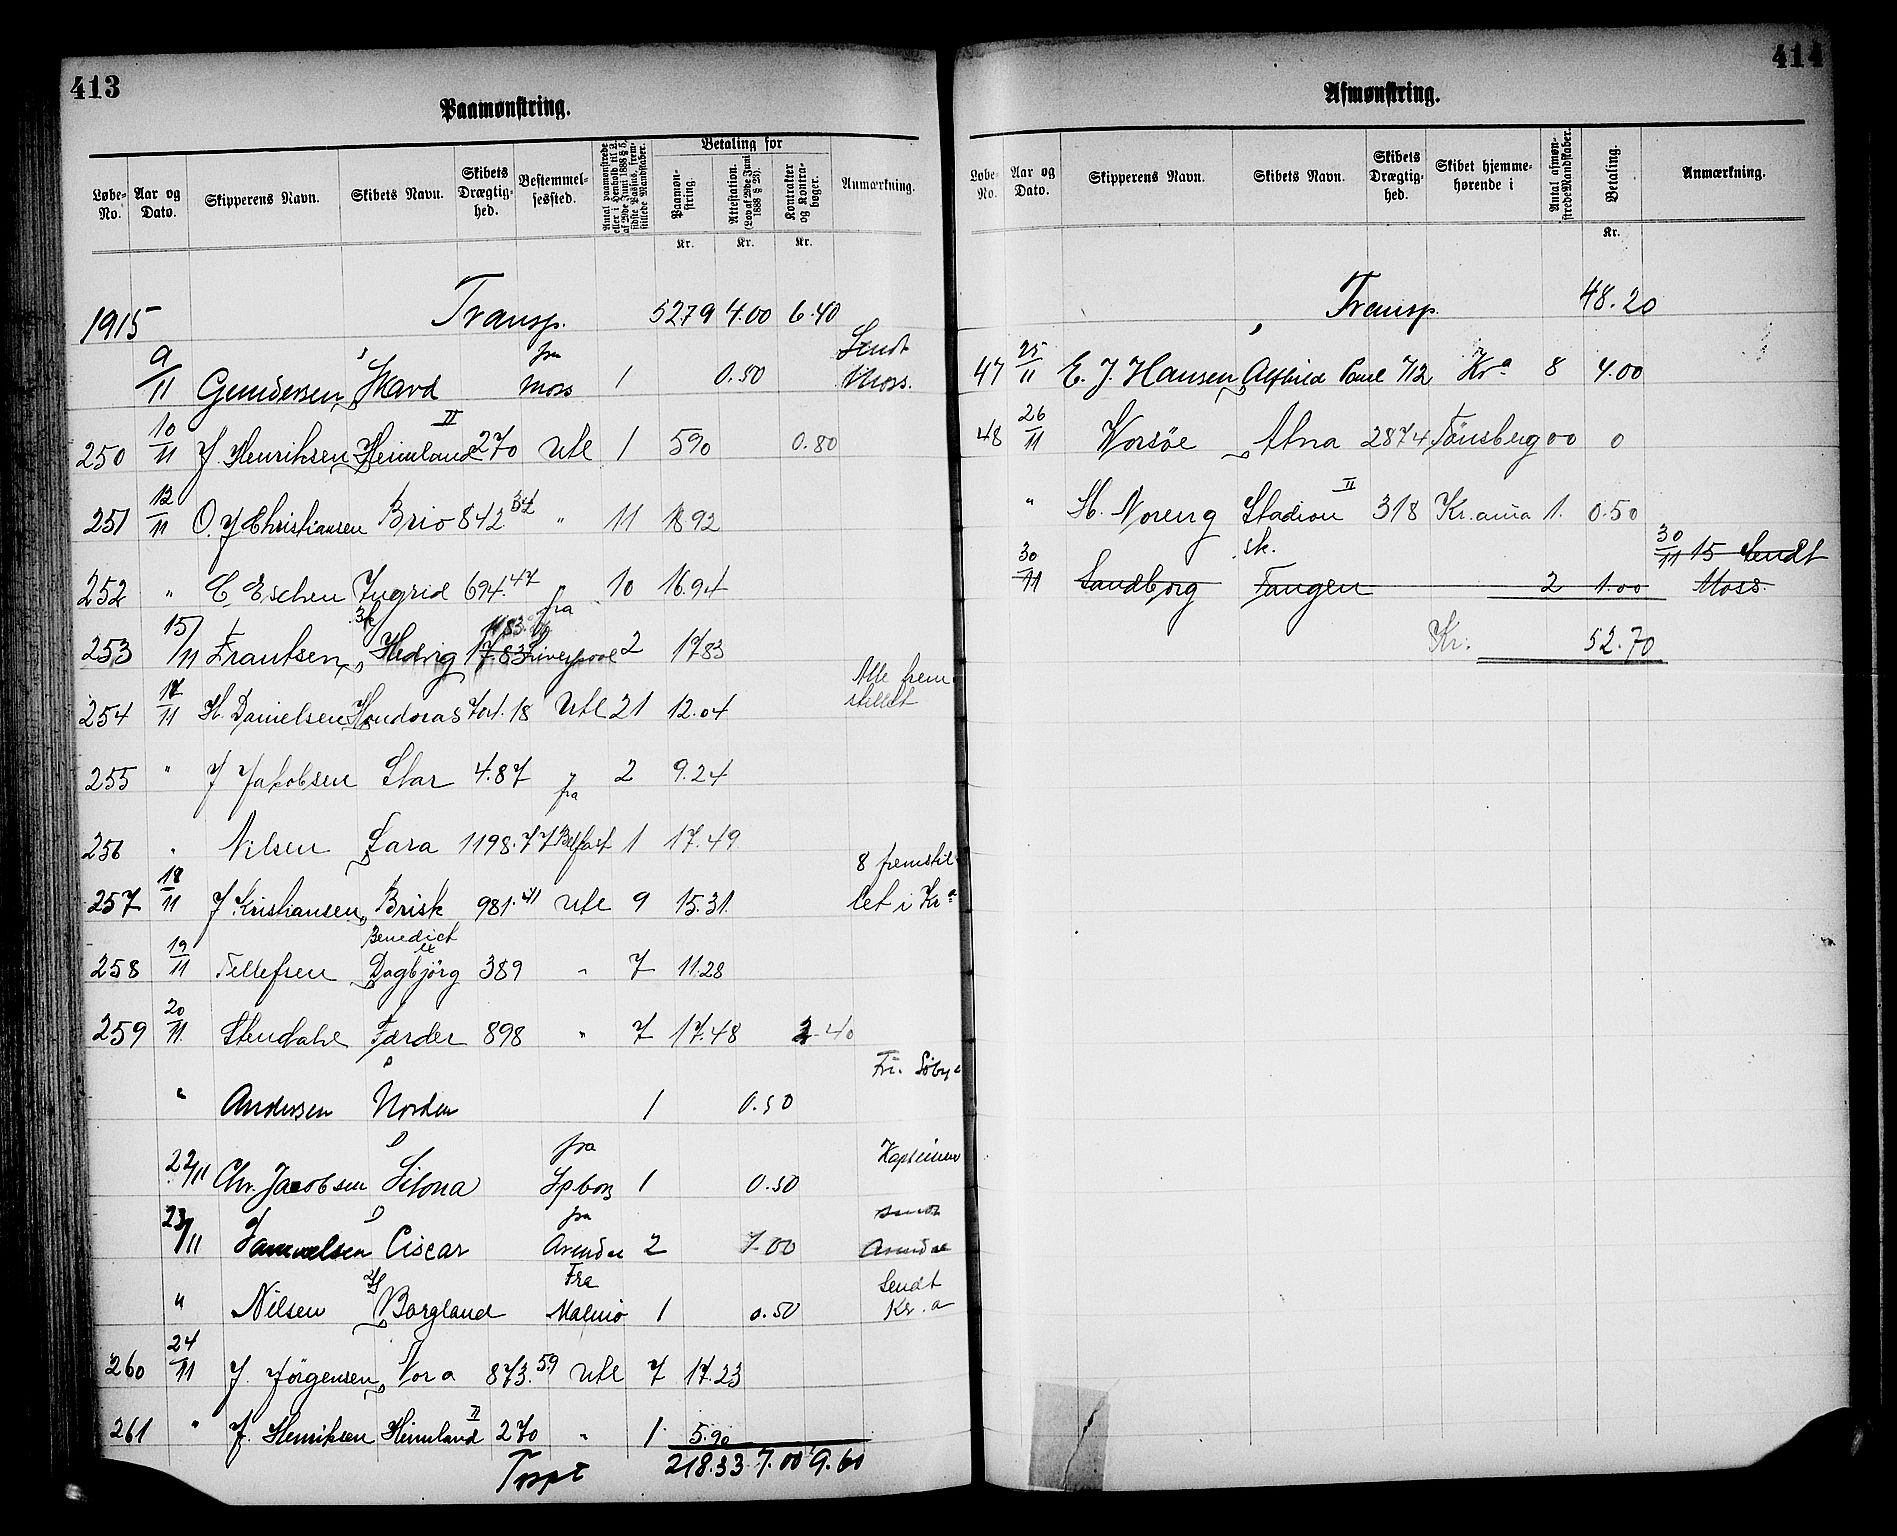 413
Paamønstring.
Løbe-No. Aar og Dato. Skipperens Navn. Skibets Navn. Skibets Drægtig-hed. Bestemmel-sessted. Antal paamønstrede eller i Henhold til § 2 af 29de Juni 1888 § 5, sidste Passus, frem-stillede Mandskaber. Betaling for Paamøn-string. Attestation. (Lov af 29de Juni 1888 § 23). Kontrakter og Kontra-bøger. Anmærkning.
Kr. Kr. Kr.
1915 Transp. 5279 4.00 6.40
9/11 Gundersen Skard fra Moss 1 0.50 Sendt Moss.
250 10/11 J. Henriksen Heimland II 270 Utl 1 590 0.80
251 12/11 O. J Christiansen Brio 842 " 11 1892
252 " C. Eschen Ingrid 694.47 " 10 16.94
253 15/11 Frantsen Sk Hedvig fra Liverpool 2 1783
254 17/11 H. Danielsen Honduras 18 Utl 21 12.04 Alle frem stillet
255 " J Jakobsen Star 4.87 " 2 9.24
256 " Nilsen Sara 1198.77 fra Belfast 1 17.49
257 18/11 J Kristiansen Brisk 981.41 Utl 9 15.31 8 fremstil let i Kra
258 19/11 Tellefsen Benedict ex Dagbjörg 389 " 7 11.28
259 20/11 Stendahl Færder 898 " 7 17.48 2.40
" Andersen Norden 1 0.50
22/11 Chr. Jacobsen Sitona fra Spborg 1 0.50 Kapteinen
23/11 Samuelsen Ciscar fra Arendal 2 1.00 Sendt Arendal
" Nilsen Borgland Fra Malmö 1 0.50 Sendt Kr.a
260 24/11 J. Jörgensen Nora 873.59 Utl 7 17.23
261 " J. Henriksen Heimland II 270 " 1 5.90
Trspt 218.33 7.00 9.60
414
Afmønstring.
Løbe-No. Aar og Dato. Skipperens Navn. Skibets Navn. Skibets Drægtig-hed. Skibet hjemme-hørende i Antal afmøn-strede Mandskaber. Betaling. Anmærkning.
Kr.
Transp. 48.20
47 25/11 E. J. Hansen Alfhild 712 Kra 8 4.00
48 26/11 Worsøe Alna 2874 Tönsberg 00 0
" H. Noreng Stadion II 318 Kr.ania 1. 0.50
30/11 Sandborg sk. Tangen 2 1.00 30/11 15 Sendt Moss.
Kr: 52.70